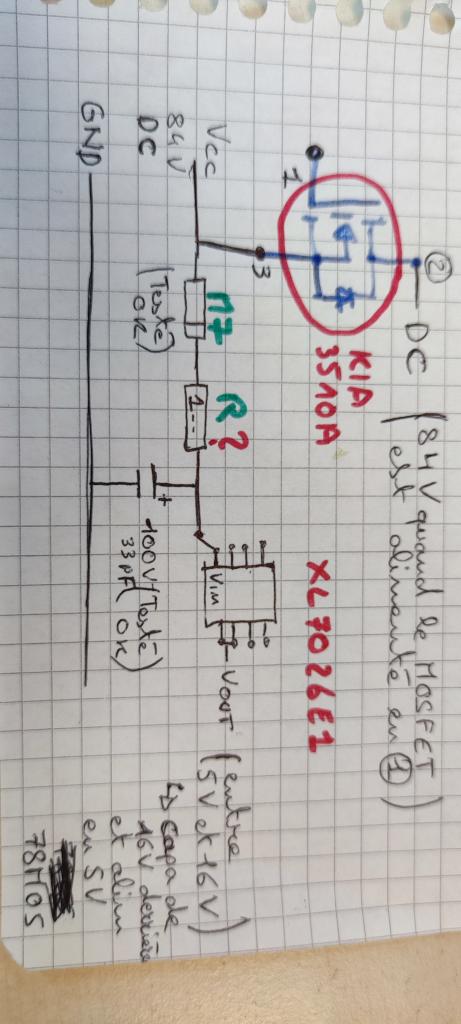 ② DC (84V quand le MOSFET
est alimenté en ①)
KIA
3510A
1
3
XL7026E1
Vcc
84V
DC
M7
(Testé
OK)
R?
1--
+
100V (Testé
33µF OK)
Vin
VOUT (entre
5V et 16V)
↳ capa de
16V derrière
et alim
en 5V
78M05
GND